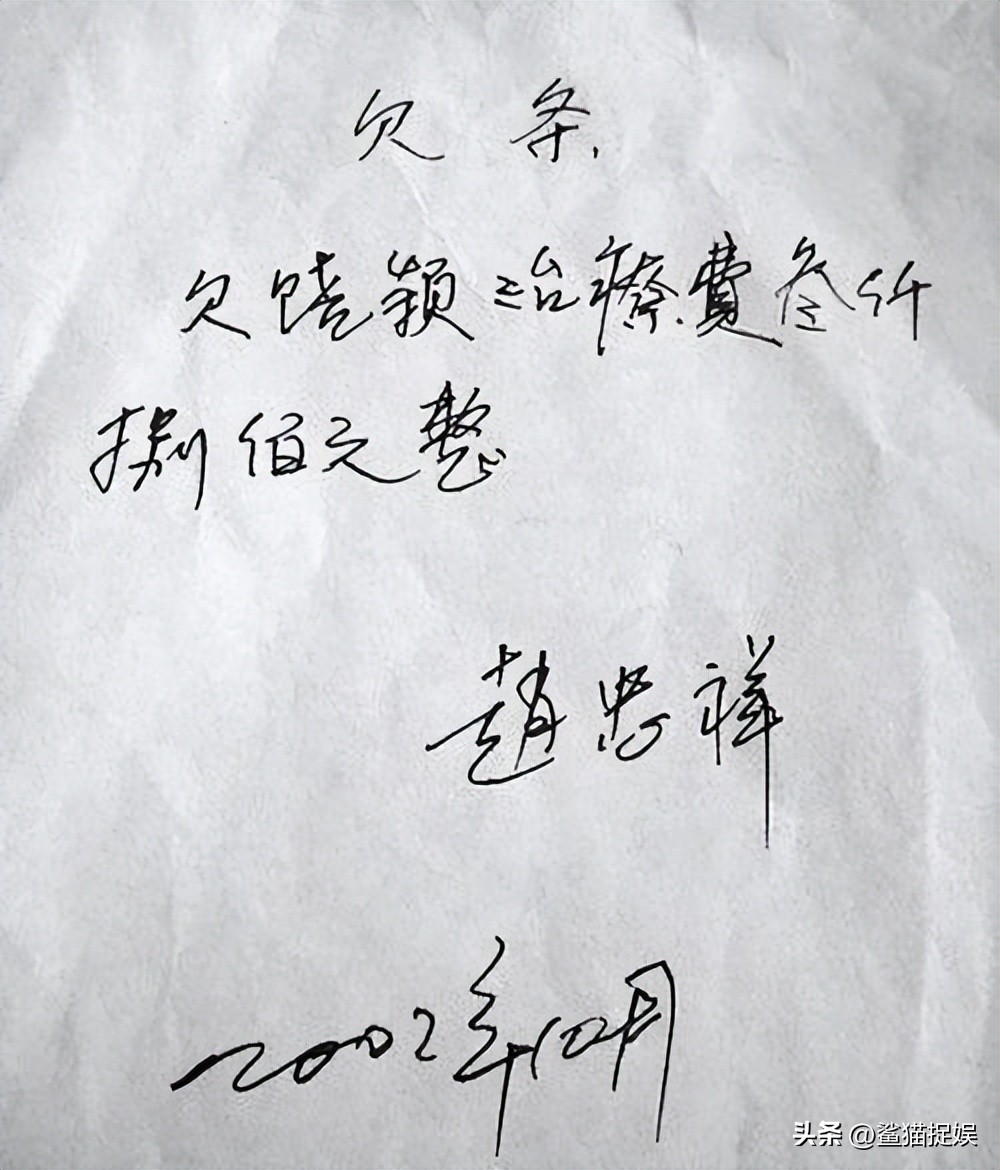 欠条
欠饶颖治療費叁仟
捌佰元整
趙忠祥
2002年四月
头条 @鲨猫捉娱